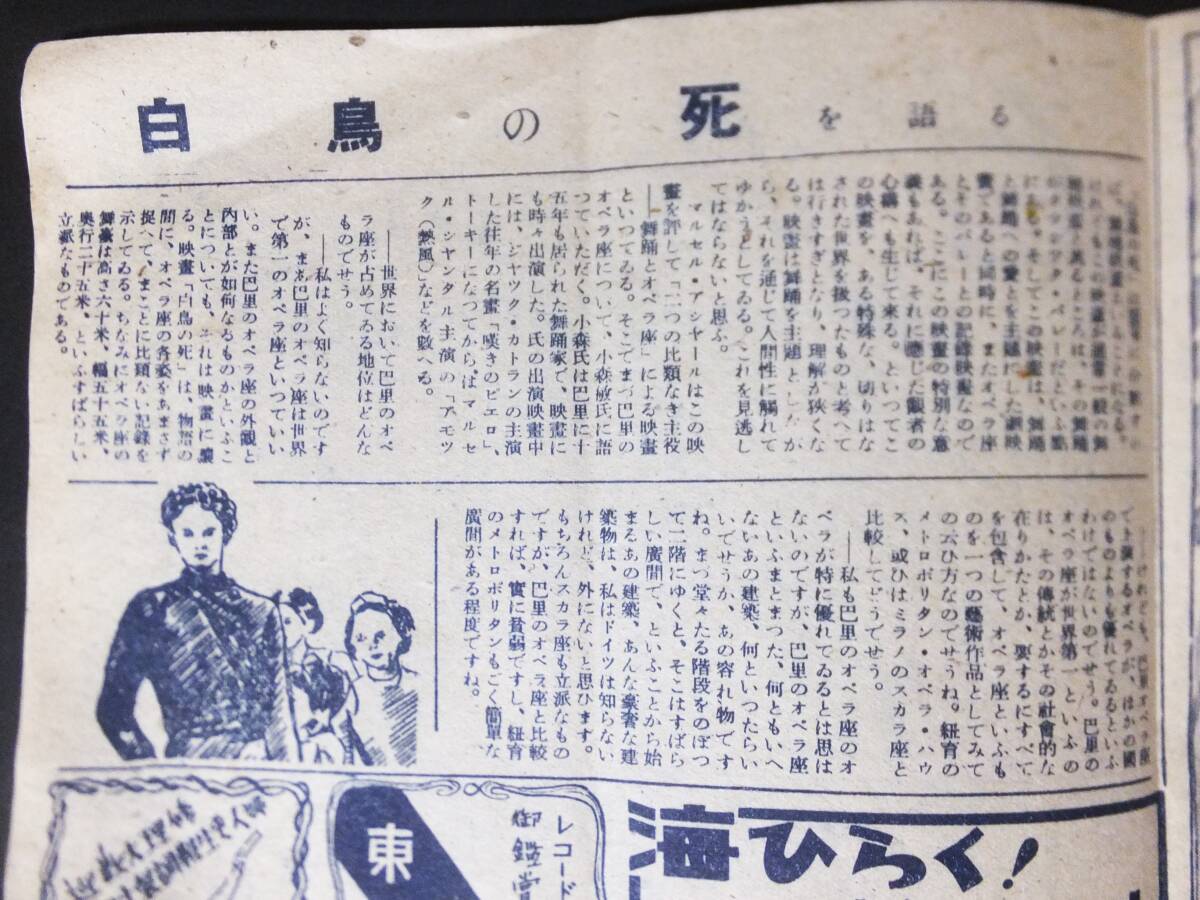 白鳥の死を語る
と舞踊への愛とを主題にした劇映
畫であると同時に、またオペラ座
とそのバレーとの記録映畫なので
ある。ここにこの映畫の特別な意
義もあれば、それに應じた觀者の
心構へも生じて來る。といつてこ
の映畫を、ある特殊な、切りはな
された世界を扱つたものと考へて
は行きすぎとなり、理解が狹くな
る。映畫は舞踊を主題としたが
ら、それを通じて人間性に觸れて
ゆかうとしてゐる。これを見逃し
てはならないと思ふ。
マルセル・アシヤールはこの映
畫を評して「二つの比類なき主役
――舞踊とオペラ座」による映畫
といつてゐる。そこでまづ巴里の
オペラ座について、小森敏氏に語
つていただく。小森氏は巴里に十
五年も居られた舞踊家で、映畫に
も時々出演した。氏の出演映畫中
には、ジヤツク・カトランの主演
した往年の名畫「嘆きのピエロ」、
トーキーになつてからはマルセ
ル・シヤンタル主演の「アモツ
ク(熱風)」などを數へる。
――世界において巴里のオペ
ラ座が占めてゐる地位はどんな
ものでせう。
――私はよく知らないのです
が、まあ巴里のオペラ座は世界
で第一のオペラ座といつていい
い。また巴里のオペラ座の外觀と
內部とが如何なるものかといふこ
とについても、それは映畫に讓
る。映畫「白鳥の死」は、物語の
間に、オペラ座の各姿をあまさず
捉へて、まことに比類ない記錄を
示してゐる。ちなみにオペラ座の
舞臺は高さ六十米、幅五十五米、
奧行二十五米、といふすばらしい
立派なものである。
――けれども、巴里オペラ座
で上演するオペラが、ほかの國
のものよりも優れてゐるといふ
わけではないのでせう。巴里の
オペラ座が世界第一といふの
は、その傳統とかその社會的な
在りかたとか、要するにすべて
を包含して、オペラ座といふも
のを一つの藝術作品としてみて
の云ひ方なのでせうね。紐育の
メトロポリタン・オペラ・ハウ
ス、或ひはミラノのスカラ座と
比較してどうでせう。
――私も巴里のオペラ座のオ
ペラが特に優れてゐるとは思は
ないのですが、巴里のオペラ座
といふまとまつた、何ともいへ
ないあの建築、何といつたらい
いでせうか、あの容れ物です
ね。まづ堂々たる階段をのぼつ
て二階にゆくと、そこはすばら
しい廣間で、といふことから始
まるあの建築、あんな豪奢な建
築物は、私はドイツは知らない
けれど、外にないと思ひます。
もちろんスカラ座も立派なもの
ですが、巴里のオペラ座と比較
すれば、實に貧弱ですし、紐育
のメトロポリタンもごく簡單な
廣間がある程度ですね。
東
レコード
御鑑賞
海ひらく!